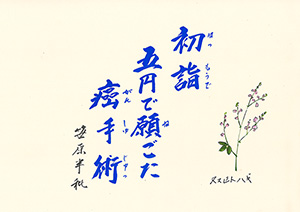 初詣
はつもうで
五円で願ごた
ね
癌手術
がんしゅじゅつ
ヌスビトハギ